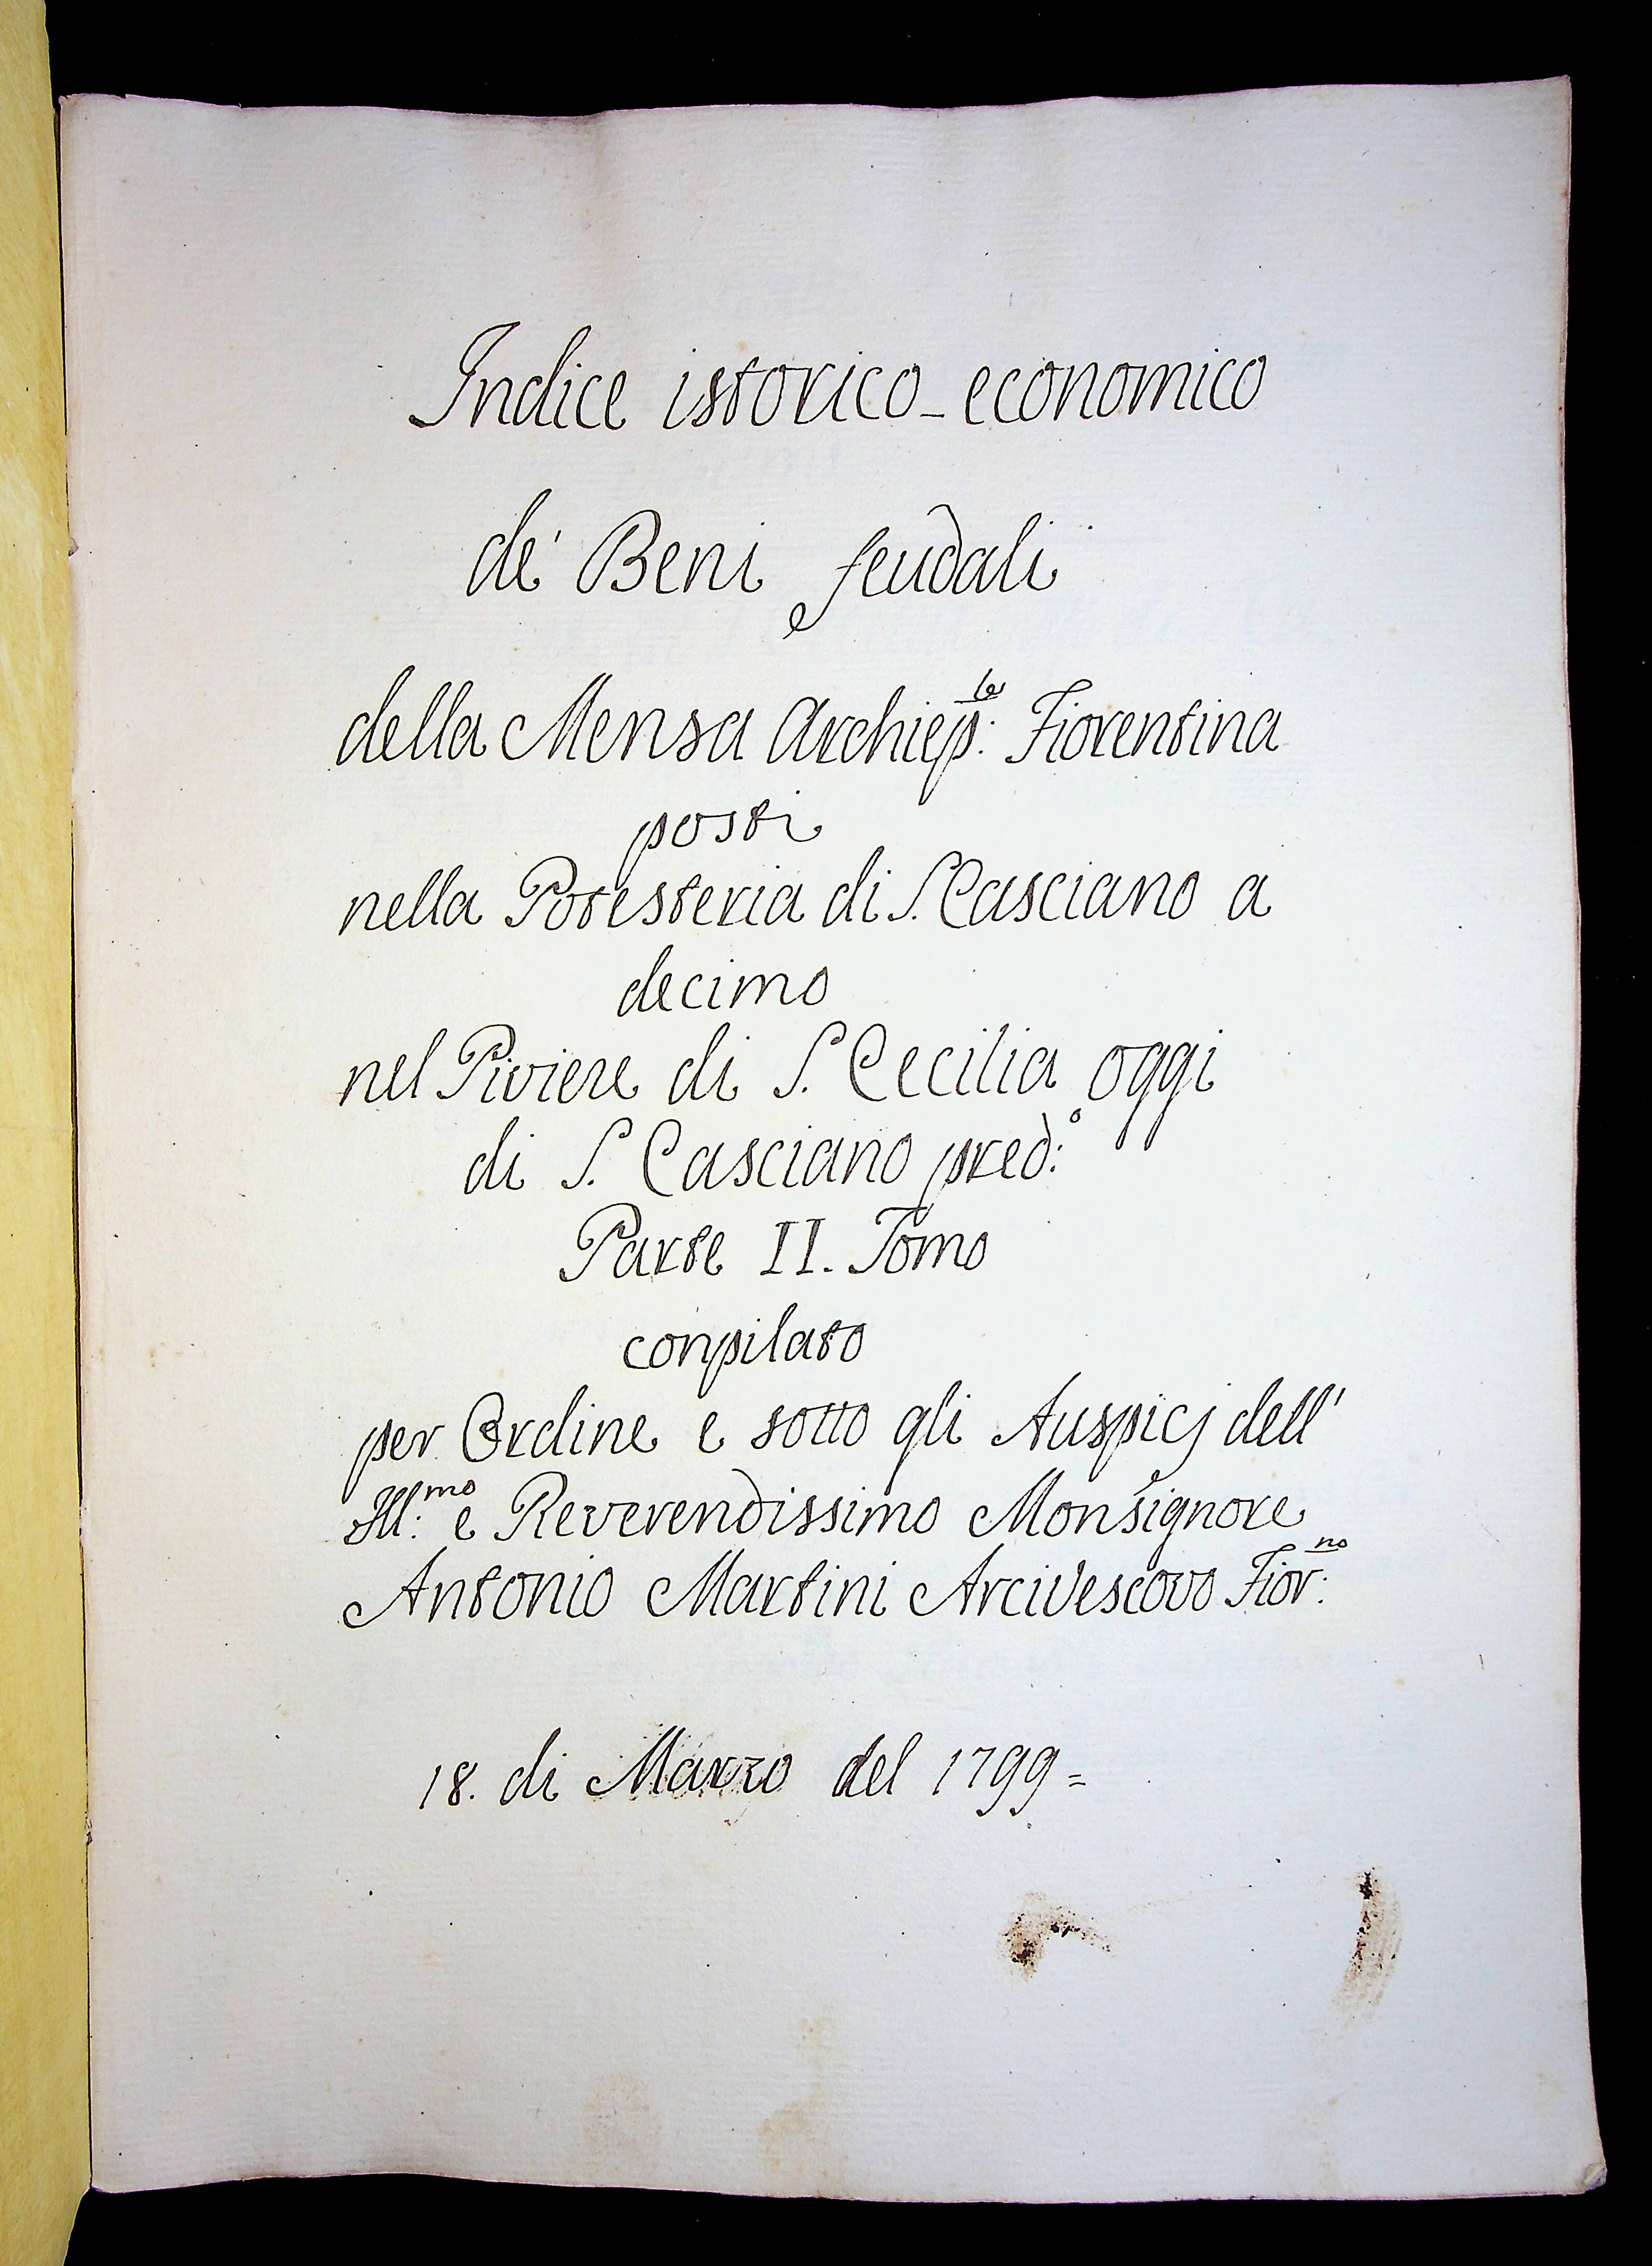 Indice istorico-economico
de' Beni feudali
della Mensa Archiep:le Fiorentina
posti
nella Potesteria di S. Casciano a
decimo
nel Piviere di S. Cecilia oggi
di S. Casciano pred:o
Parte II. Tomo
conpilato
per Ordine e sotto gli Auspicj dell'
Ill:mo e Reverendissimo Monsignore
Antonio Martini Arcivescovo Fior:no
18. di Marzo del 1799=